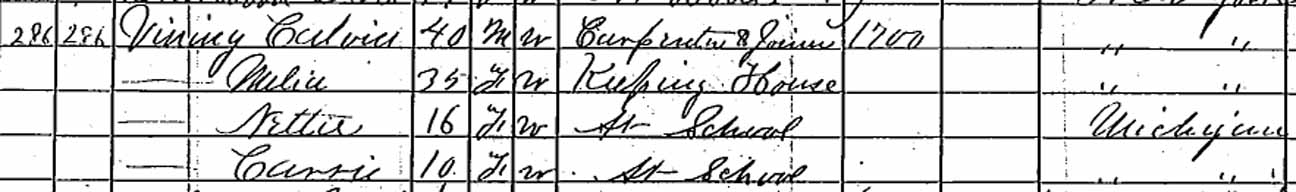 286 286 Vining Calvin 40 M W Carpenter & Joiner 1700 " "
— Melia 35 F W Keeping House " "
— Nettie 16 F W At School Michigan
— Carrie 10 F W At School " "